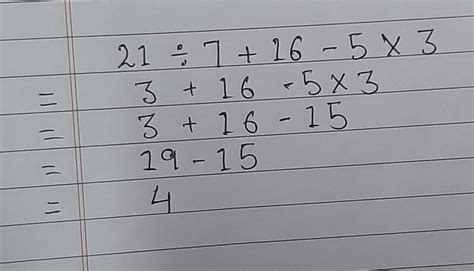 21 ÷ 7 + 16 - 5 × 3
= 3 + 16 - 5 × 3
= 3 + 16 - 15
= 19 - 15
= 4